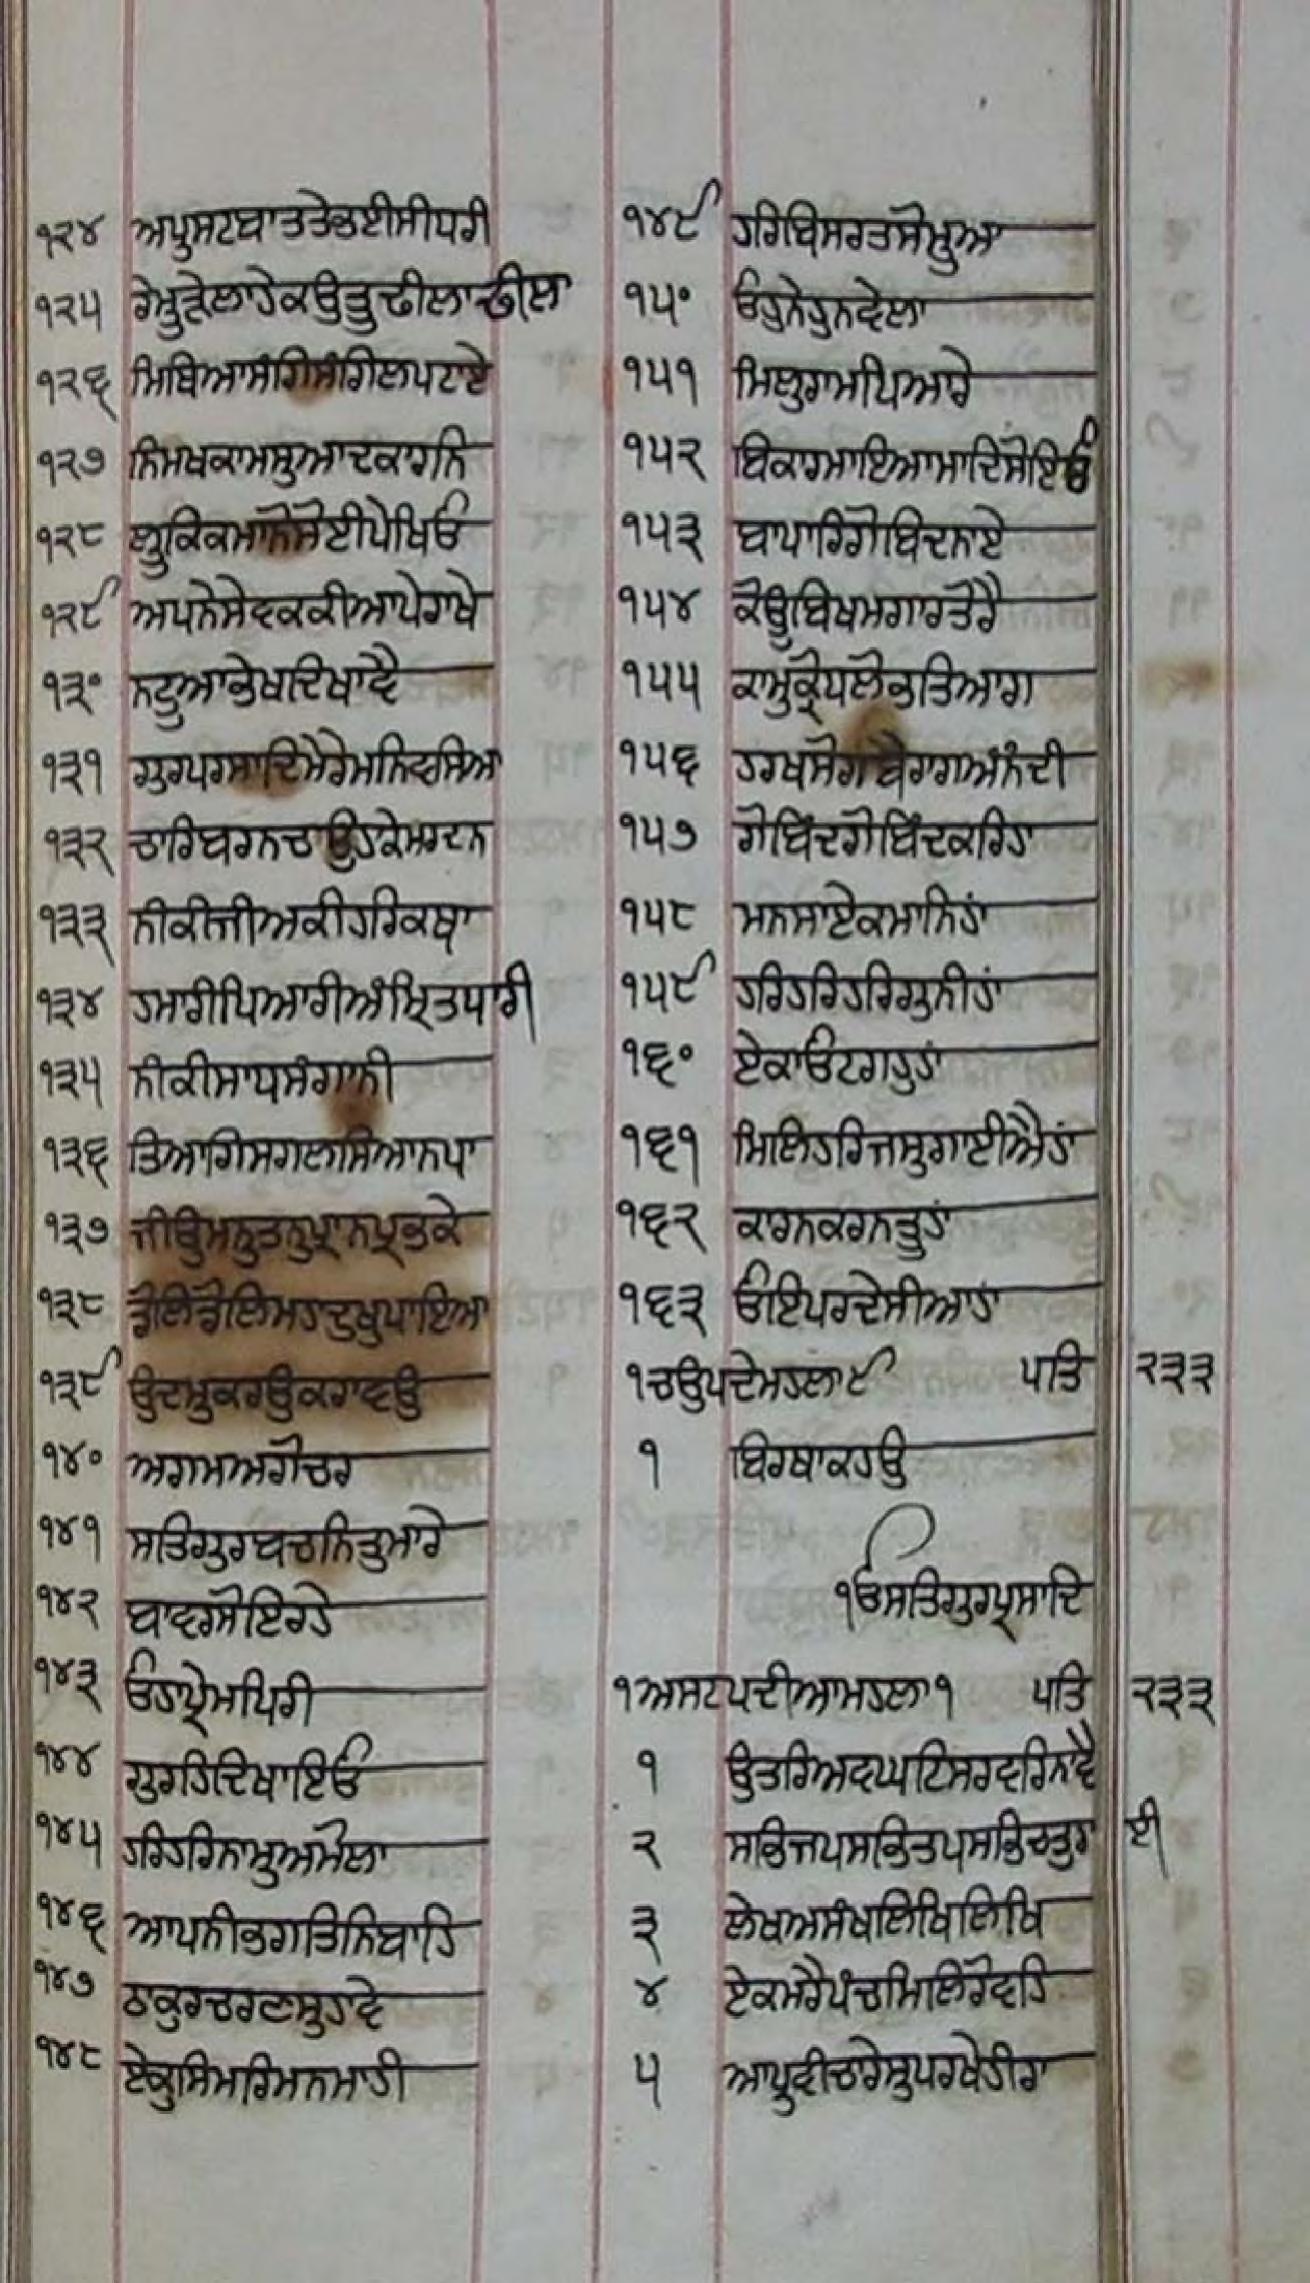 ੧੨੪ ਅਪੁਸਟਬਾਤਤੇਭਈਸੀਧਰੀ
੧੨੫ ਰੇਮੂੜੇਲਾਹੇਕਉਤੂਢੀਲਾਢੀਲਾ
੧੨੬ ਮਿਥਿਆਸੰਗਿਸੰਗਿਲਪਟਾਏ
੧੨੭ ਨਿਮਖਕਾਮਸੁਆਦਕਾਰਨਿ
੧੨੮ ਲੂਕਿਕਮਾਨੋਸੋਈਪੇਖਿਓ
੧੨੯ ਅਪਨੇਸੇਵਕਕੀਆਪੇਰਾਖੇ
੧੩੦ ਨਟੂਆਭੇਖਦਿਖਾਵੈ
੧੩੧ ਗੁਰਪਰਸਾਦਿਮੇਰੇਮਨਿਵਸਿਆ
੧੩੨ ਚਾਰਿਬਰਨਚਾਉਹਕੇਮਰਦਨ
੧੩੩ ਨੀਕੀਜੀਅਕੀਹਰਿਕਥਾ
੧੩੪ ਹਮਾਰੀਪਿਆਰੀਅੰਮ੍ਰਿਤਧਾਰੀ
੧੩੫ ਨੀਕੀਸਾਧਸੰਗਾਨੀ
੧੩੬ ਤਿਆਗਿਸਗਲਸਿਆਨਪਾ
੧੩੭ ਜੀਉਮਨੁਤਨੁਪ੍ਰਾਨਪ੍ਰਭਕੇ
੧੩੮ ਡੋਲਿਡੋਲਿਮਹਾਦੁਖੁਪਾਇਆ
੧੩੯ ਉਦਮੁਕਰਉਕਰਾਵਉ
੧੪੦ ਅਗਮਅਗੋਚਰ
੧੪੧ ਸਤਿਗੁਰਬਚਨਿਤੁਮਾਰੇ
੧੪੨ ਬਾਵਰਸੋਇਰਹੇ
੧੪੩ ਓਹਾਪ੍ਰੇਮਪਿਰੀ
੧੪੪ ਗੁਰਹਿਦਿਖਾਇਓ
੧੪੫ ਹਰਿਹਰਿਨਾਮੁਅਮੋਲਾ
੧੪੬ ਆਪਨੀਭਗਤਿਨਿਬਾਹਿ
੧੪੭ ਠਾਕੁਰਚਰਣਸੁਹਾਵੇ
੧੪੮ ਏਕੁਸਿਮਰਿਮਨਮਾਹੀ
੧੪੯ ਹਰਿਬਿਸਰਤਸੋਮੂਆ
੧੫੦ ਓਹੁਨੇਹੁਨਵੇਲਾ
੧੫੧ ਮਿਲੁਰਾਮਪਿਆਰੇ
੧੫੨ ਬਿਕਾਰਮਾਇਆਮਾਦਿਸੋਇਓ
੧੫੩ ਬਾਪਾਰਿਗੋਬਿਦਨਾਏ
੧੫੪ ਕੋਊਬਿਖਮਗਾਰਤੋਰੈ
੧੫੫ ਕਾਮੁਕ੍ਰੋਧਲੋਭਤਿਆਗ
੧੫੬ ਹਰਖਸੋਗਬੈਰਾਗਅੰਨੰਦੀ
੧੫੭ ਗੋਬਿੰਦਗੋਬਿੰਦਕਰਿਹਾਂ
੧੫੮ ਮਨਸਾਏਕਮਾਨਿਹਾਂ
੧੫੯ ਹਰਿਹਰਿਹਰਿਗੁਨੀਹਾਂ
੧੬੦ ਏਕਾਓਟਗਹੁਹਾਂ
੧੬੧ ਮਿਲਿਹਰਿਜਸੁਗਾਈਐਹਾਂ
੧੬੨ ਕਾਰਨਕਰਨਤੂਹਾਂ
੧੬੩ ਓਇਪਰਦੇਸੀਆਹਾਂ
੧ਚਉਪਦੇਮਹਲਾ੯ ਪਤਿ ੨੩੩
੧ ਬਿਰਥਾਕਹਉ
੧ਓਸਤਿਗੁਰਪ੍ਰਸਾਦਿ
੧ਅਸਟਪਦੀਆਮਹਲਾ੧ ਪਤਿ ੨੩੩
੧ ਉਤਰਿਅਵਘਟਿਸਰਵਰਿਨਾਵੈ
੨ ਸਭਿਜਪਸਭਿਤਪਸਭਿਚਤੁਰਾਈ
੩ ਲੇਖਅਸੰਖਲਿਖਿਲਿਖਿ
੪ ਏਕਮਰੈਪੰਚਮਿਲਿਰੋਵਹਿ
੫ ਆਪੁਵੀਚਾਰੇਸੁਪਰਖੇਹੀਰਾ